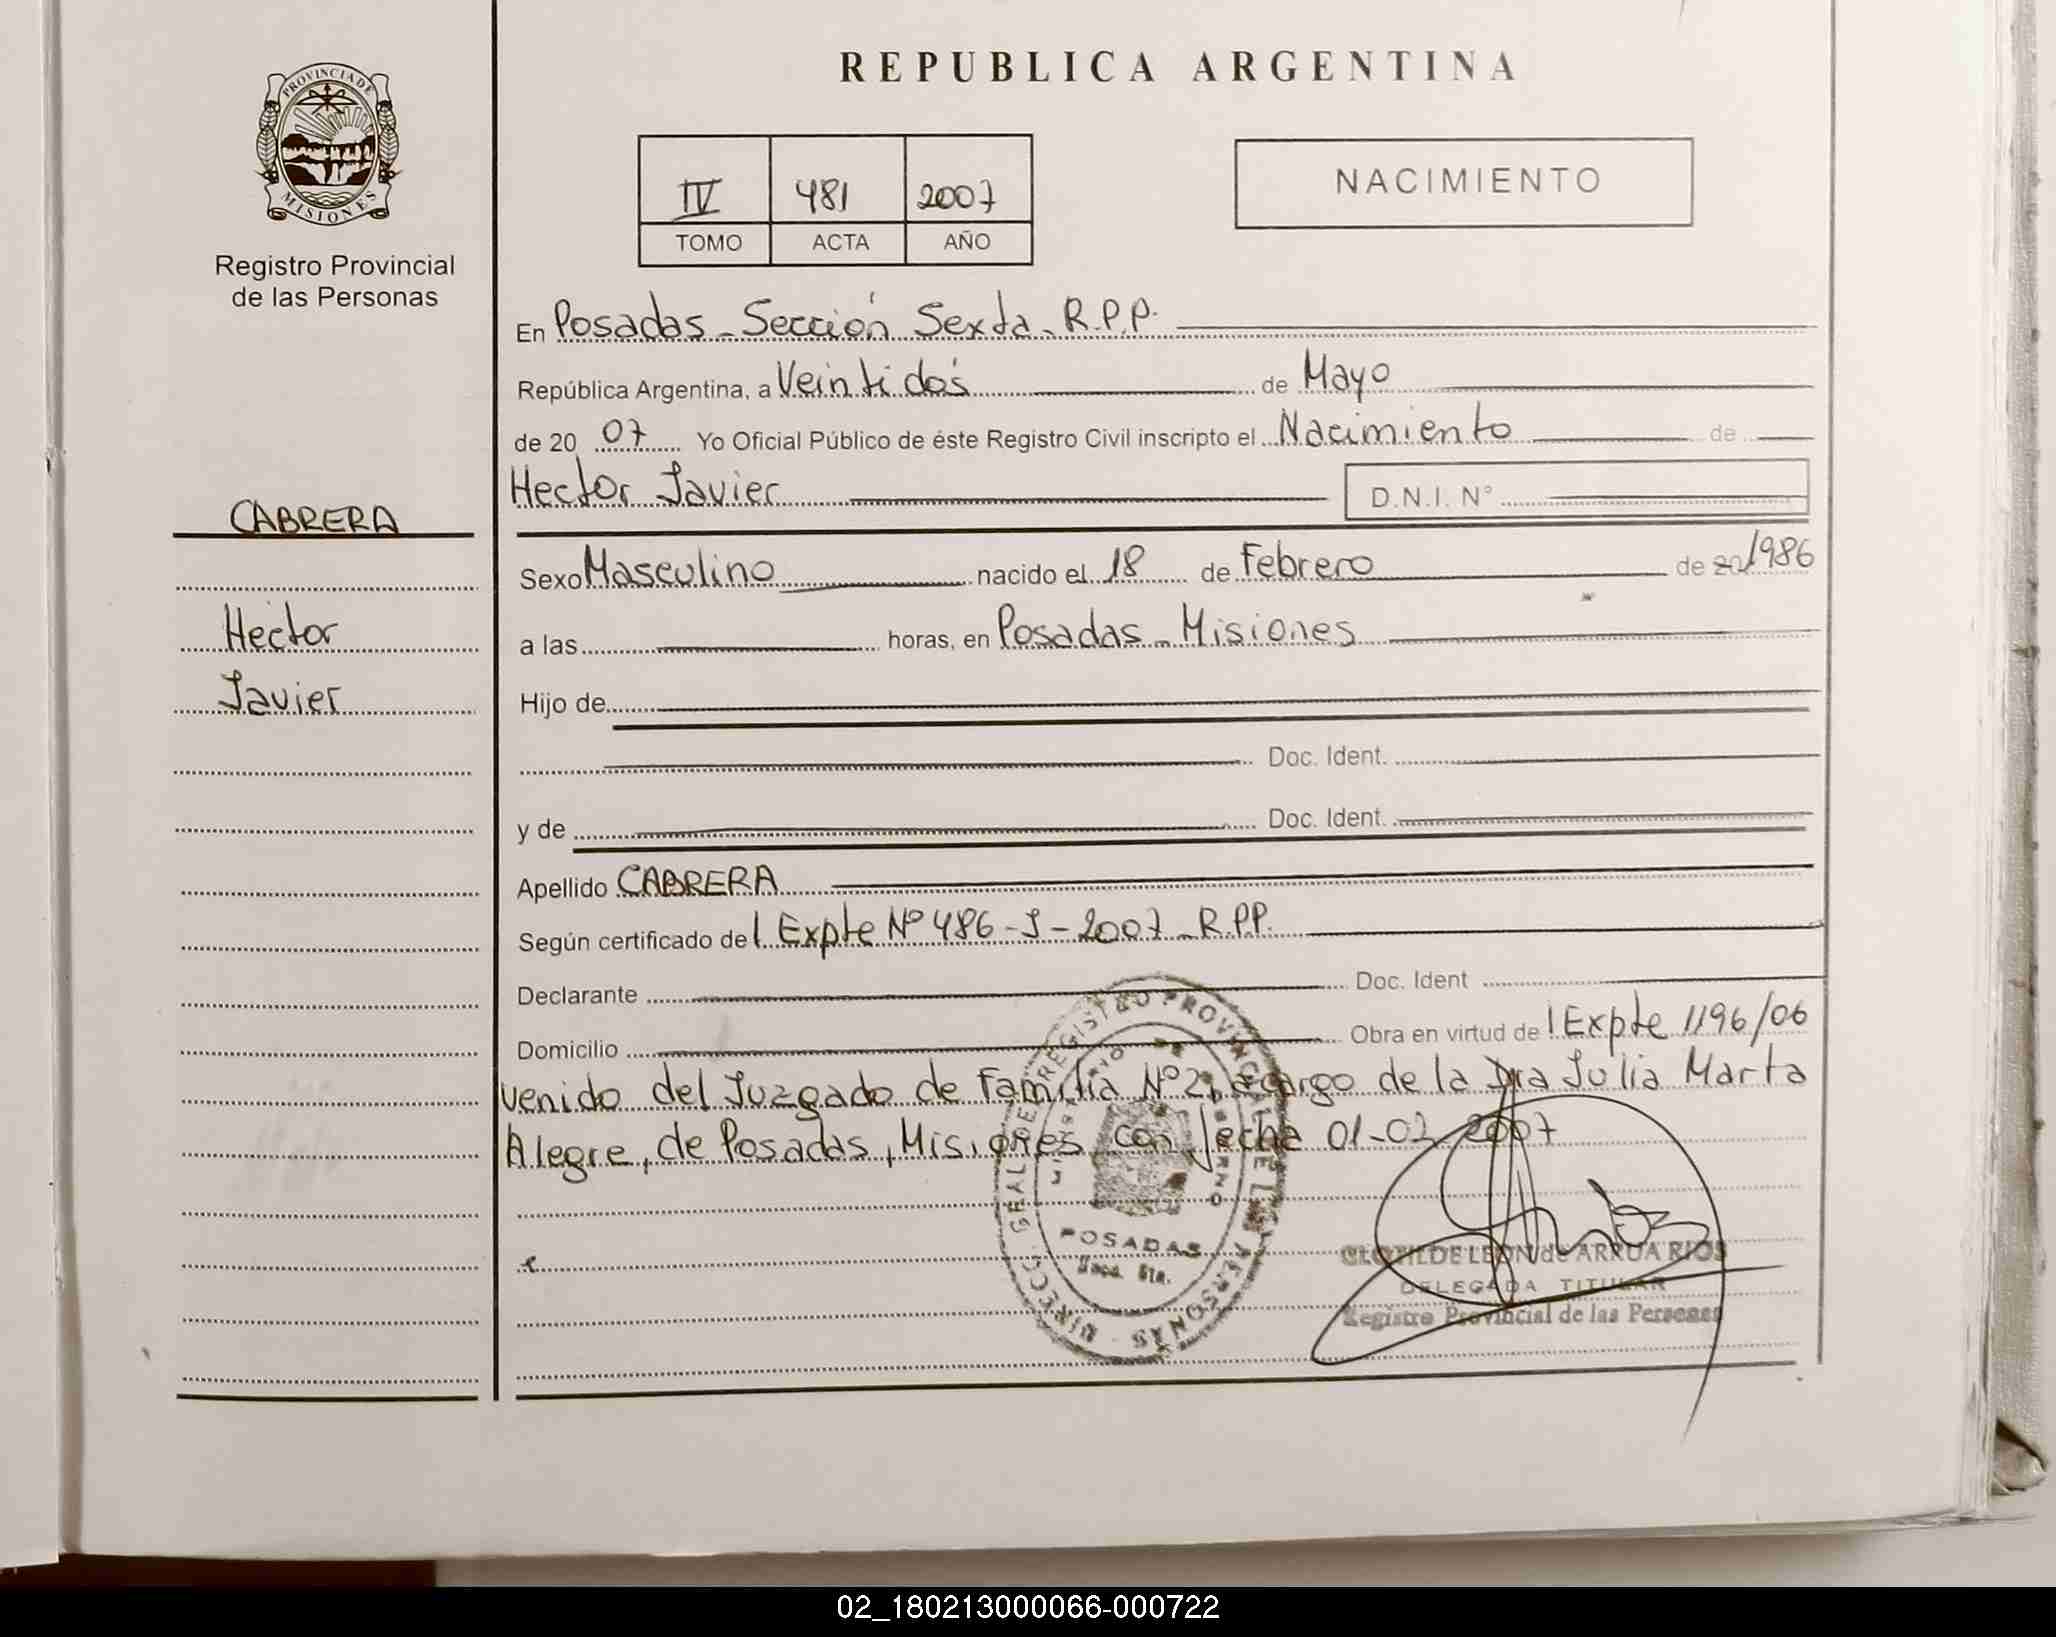 REPUBLICA ARGENTINA
PROVINCIA DE
MISIONES
Registro Provincial
de las Personas
IV 481 2007
TOMO ACTA AÑO
NACIMIENTO
En Posadas - Sección Sexta - R.P.P.
República Argentina, a Veintidós de Mayo
de 20 07 Yo Oficial Público de éste Registro Civil inscripto el Nacimiento de
Hector Javier D.N.I. N°
CABRERA
Sexo Masculino nacido el 18 de Febrero de 20 1986
Hector
a las horas, en Posadas - Misiones
Javier
Hijo de
Doc. Ident.
y de Doc. Ident.
Apellido CABRERA
Según certificado del Expte Nº 486-J-2007 - R.P.P.
Declarante Doc. Ident
Domicilio Obra en virtud del Expte 1196/06
venido del Juzgado de Familia Nº 2, a cargo de la Dra Julia Marta
Alegre, de Posadas, Misiones con fecha 2007
DIRECC. GRAL DE REGISTRO PROVINCIAL DE LAS PERSONAS
POSADAS
CLOTILDE LEON de ARRUA RIOS
DELEGADA TITULAR
Registro Provincial de las Personas
02_180213000066-000722